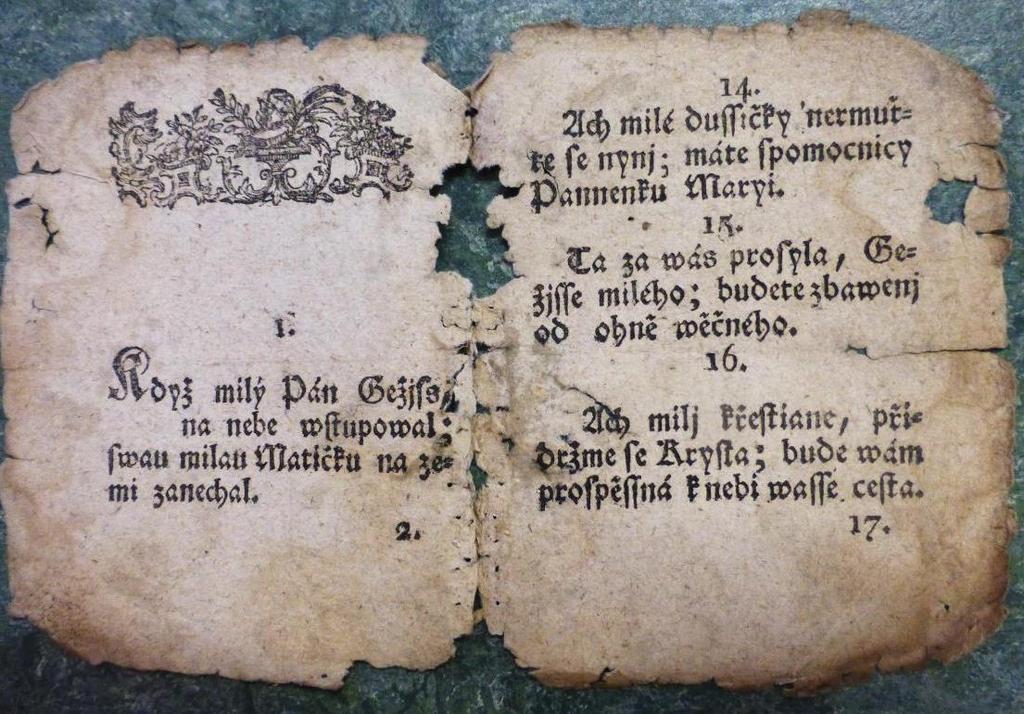 1.
Když milý Pán Gežjss,
na nebe wstupowal;
swau milau Matičku na ze=
mi zanechal.
2.
14.
Ach milé dussičky nermuť=
te se nynj; máte spomocnicy
Pannenku Maryi.
15.
Ta za wás prosyla, Ge=
žjsse milého; budete zbawenj
od ohně wěčného.
16.
Ach milj křestiane, při=
držme se Krysta; bude wám
prospěssná k nebi wasse cesta.
17.